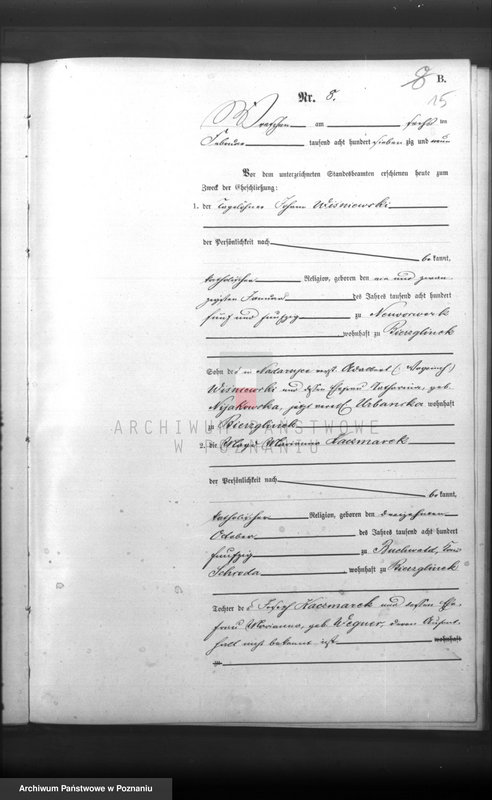 8 B.
15
Nr. 8.
Wreschen am sechs ten
Februar tausend acht hundert sieben zig und neun
Vor dem unterzeichneten Standesbeamten erschienen heute zum
Zweck der Eheschließung:
1. der Tagelöhner Johann Wisniewski
der Persönlichkeit nach
bekannt,
katholischer Religion, geboren den ein und zwan-
zigsten Januar des Jahres tausend acht hundert
fünf und fünfzig zu Neuvorwerk
wohnhaft zu Bierzglinek
Sohn des in verst. Adalbert
Wisniewski und dessen Ehefrau Katharina, geb.
Nijakowska, jetzt verehl. Urbanska wohnhaft
zu Bierzglinek
2. die Magd Marianna Kaczmarek
der Persönlichkeit nach
bekannt,
katholischer Religion, geboren den dreizehnten
October des Jahres tausend acht hundert
fünfzig zu Buchwald, Kreis
Schroda wohnhaft zu Bierzglinek
Tochter des Joseph Kaczmarek und dessen Ehe-
frau Marianna, geb. Wegner, deren Aufent-
halt nicht bekannt ist wohnhaft
zu
ARCHIWUM PAŃSTWOWE
W POZNANIU
Archiwum Państwowe w Poznaniu